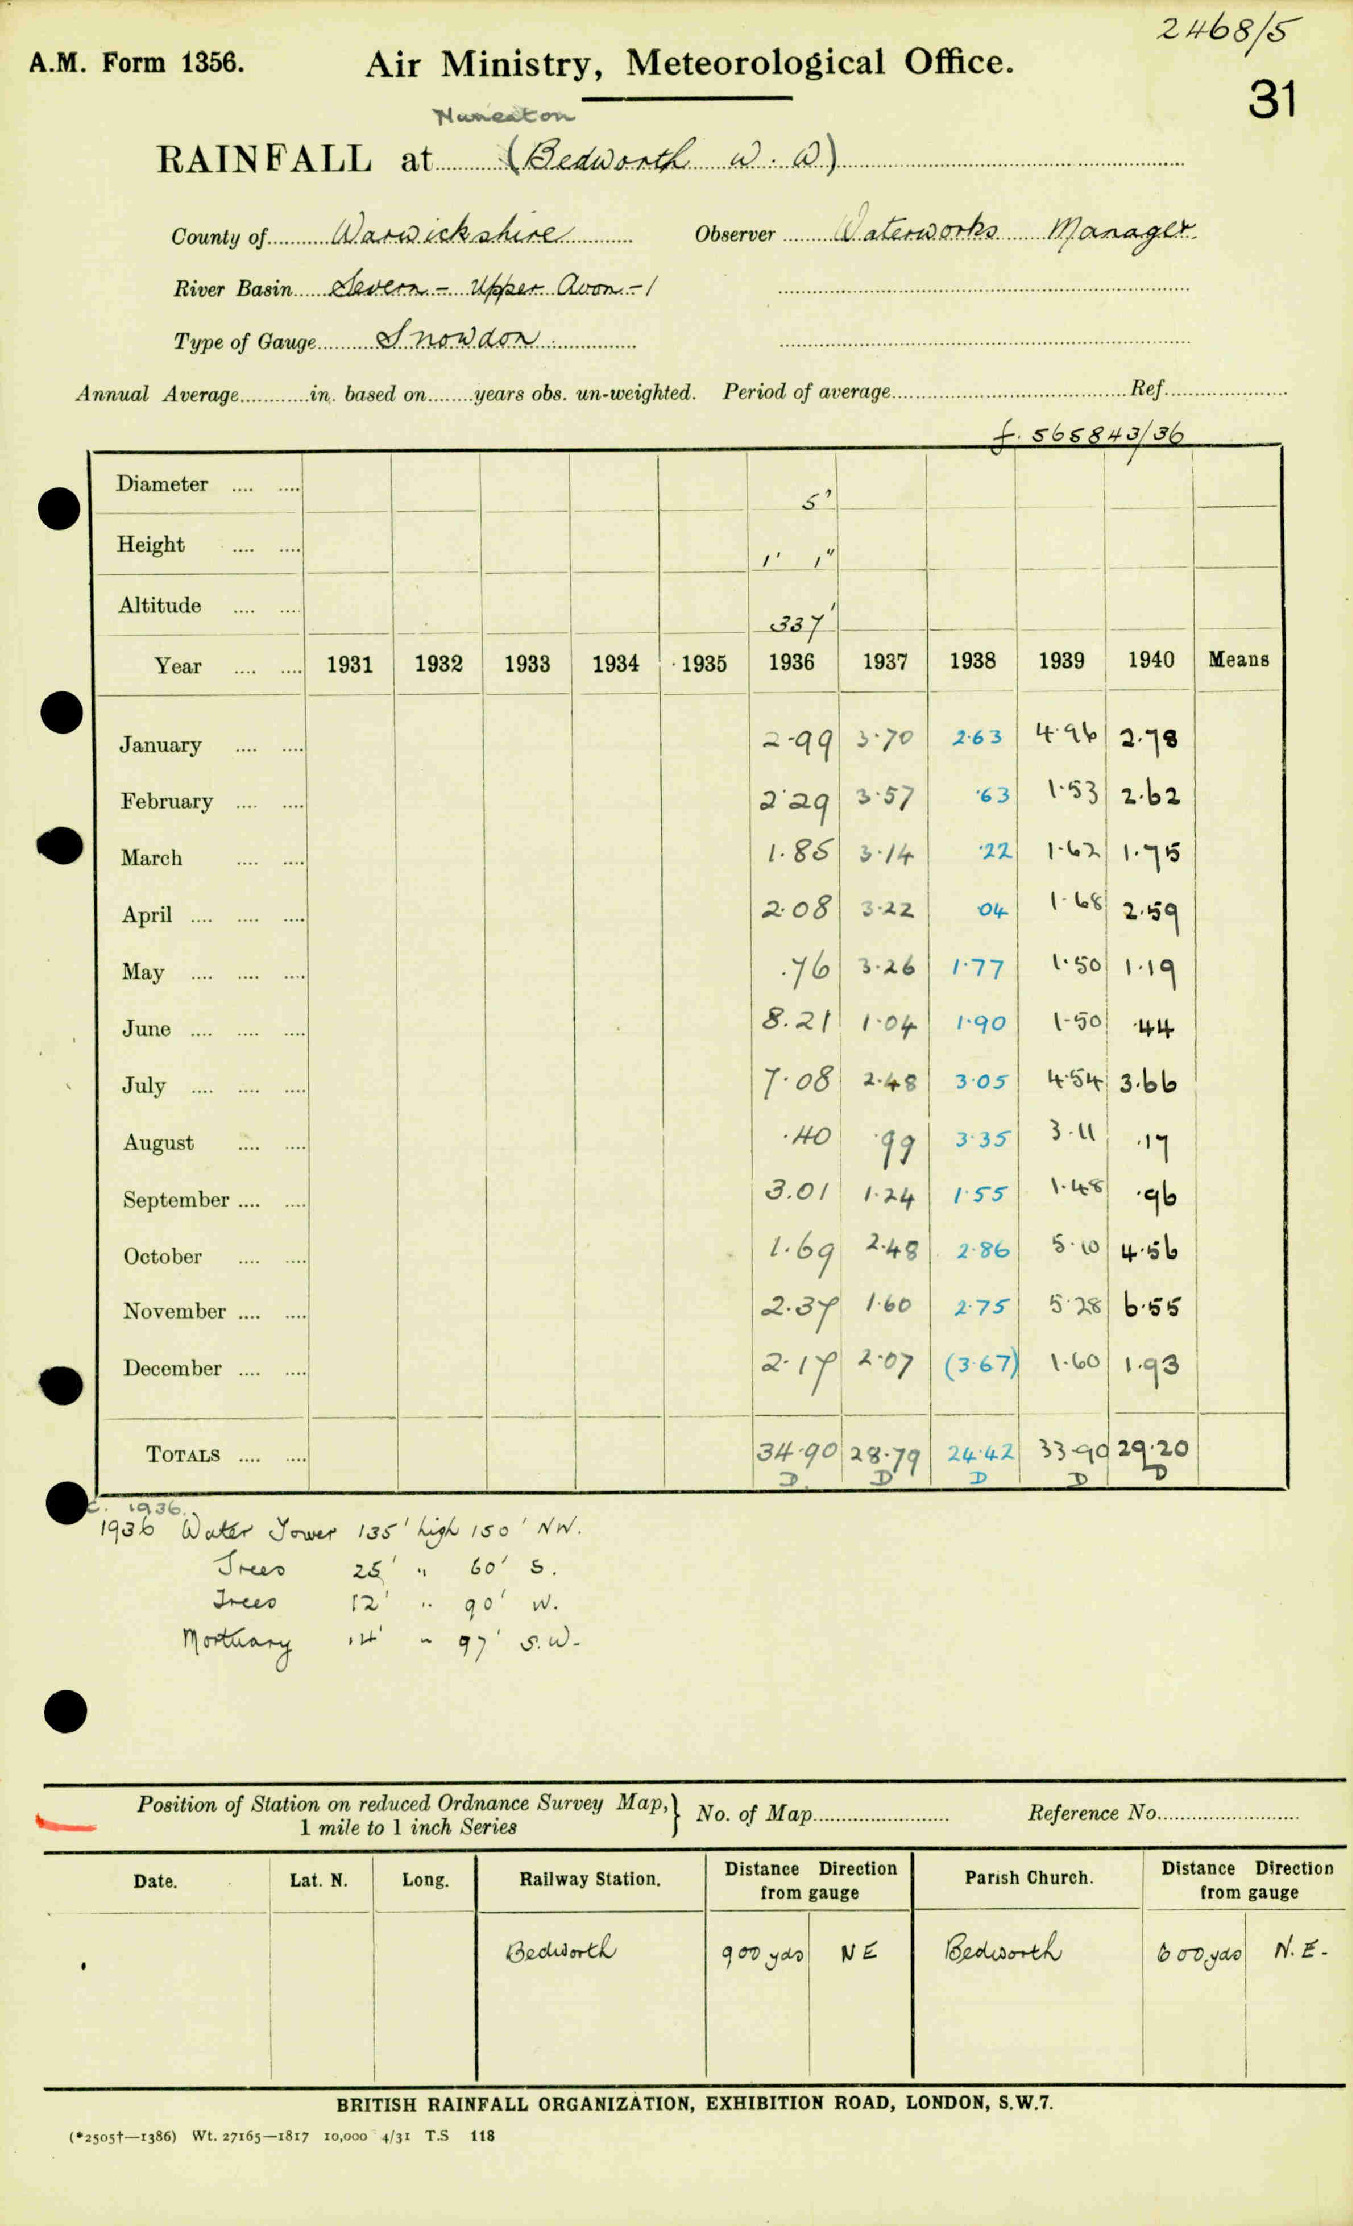 2468/5
A.M. Form 1356. Air Ministry, Meteorological Office.
31
Nuneaton
RAINFALL at (Bedworth W. W)
County of Warwickshire Observer Waterworks Manager
River Basin Severn - Upper Avon - 1
Type of Gauge Snowdon
Annual Average............in. based on........years obs. un-weighted. Period of average.......... Ref..........
f. 565843/36
Diameter .... .... 5"
Height .... .... 1' 1"
Altitude .... .... 337'
Year .... .... 1931 1932 1933 1934 1935 1936 1937 1938 1939 1940 Means
January .... .... 2.99 3.70 2.63 4.96 2.78
February .... .... 2.29 3.57 .63 1.53 2.62
March .... .... 1.85 3.14 .22 1.62 1.75
April .... .... .... 2.08 3.22 .04 1.68 2.59
May .... .... .... .76 3.26 1.77 1.50 1.19
June .... .... .... 8.21 1.04 1.90 1.50 .44
July .... .... .... 7.08 2.48 3.05 4.54 3.66
August .... .... .40 .99 3.35 3.11 .17
September .... .... 3.01 1.24 1.55 1.48 .96
October .... .... 1.69 2.48 2.86 5.10 4.56
November .... .... 2.37 1.60 2.75 5.28 6.55
December .... .... 2.17 2.07 (3.67) 1.60 1.93
TOTALS .... .... 34.90 28.79 24.42 33.90 29.20
D D D D D
c. 1936.
1936 Water Tower 135' high 150' NW.
Trees 25' " 60' S.
Trees 12' " 90' W.
Mortuary 14' " 97' S.W.
Position of Station on reduced Ordnance Survey Map, } No. of Map.......... Reference No..........
1 mile to 1 inch Series
Date. Lat. N. Long. Railway Station. Distance Direction from gauge Parish Church. Distance Direction from gauge
Bedworth 900 yds NE Bedworth 600 yds N.E.
BRITISH RAINFALL ORGANIZATION, EXHIBITION ROAD, LONDON, S.W.7.
(*2505†—1386) Wt. 27165—1817 10,000 4/31 T.S 118